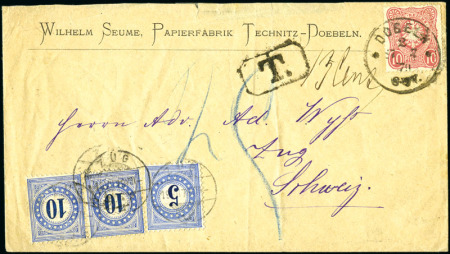 WILHELM SEUME, PAPIERFABRIK TECHNITZ-DOEBELN.
DOEBELN
10
T.
Herrn Adv. Ad. Wyß
Zug
Schweiz.
ZUG
10 10 5